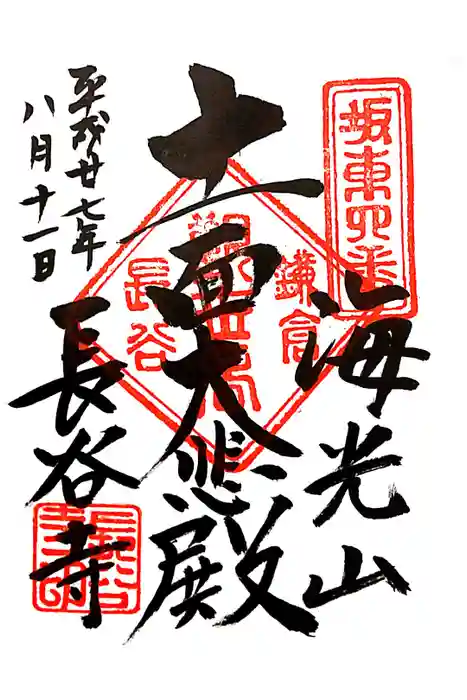 坂東四番
海光山
十一面大悲殿
鎌倉
長谷
平成廿七年
八月十一日
長谷寺